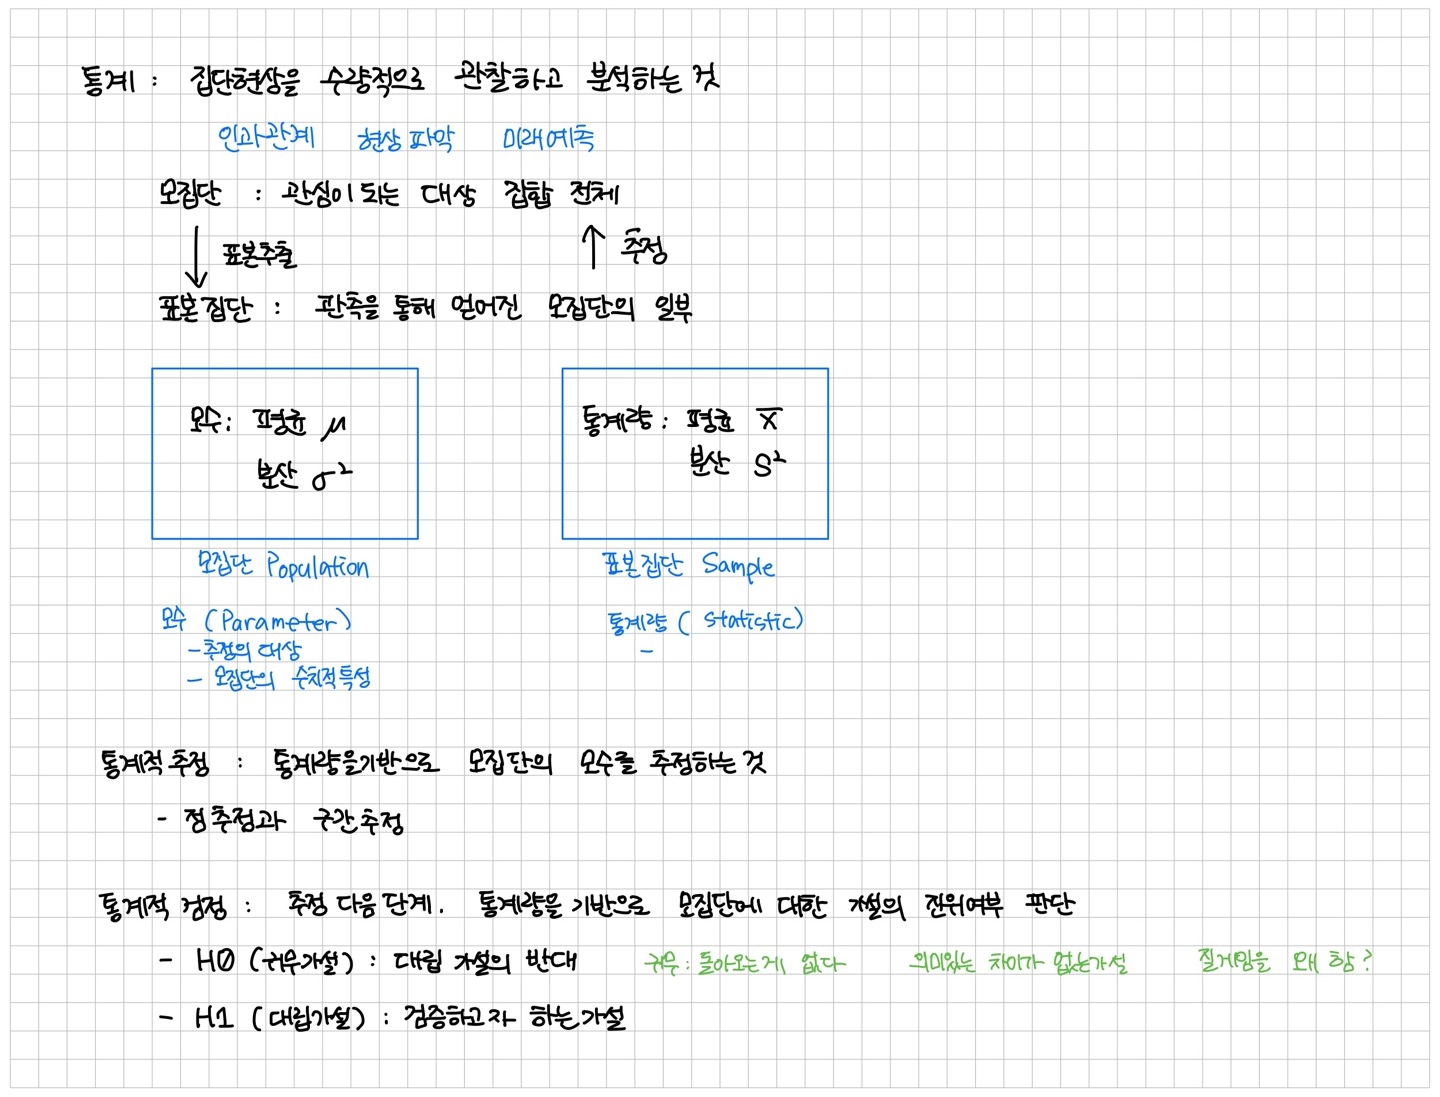 통계 : 집단현상을 수량적으로 관찰하고 분석하는 것
인과관계 현상파악 미래예측
모집단 : 관심이 되는 대상 집합 전체
표본추출 추정
표본집단 : 관측을 통해 얻어진 모집단의 일부
모수 : 평균 μ
분산 σ²
통계량 : 평균 X̄
분산 S²
모집단 Population
표본집단 Sample
모수 (Parameter)
- 추정의 대상
- 모집단의 수치적특성
통계량 (Statistic)
-
통계적 추정 : 통계량을기반으로 모집단의 모수를 추정하는 것
- 점 추정과 구간 추정
통계적 검정 : 추정 다음 단계. 통계량을 기반으로 모집단에 대한 가설의 진위여부 판단
- H0 (귀무가설) : 대립 가설의 반대 귀무 : 돌아오는게 없다 의미있는 차이가 없는가설 질게임을 왜 함?
- H1 (대립가설) : 검증하고자 하는가설